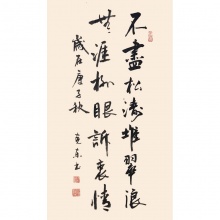 不盡松濤堆翠浪
無涯柳眼訴衷情
歲在庚子秋